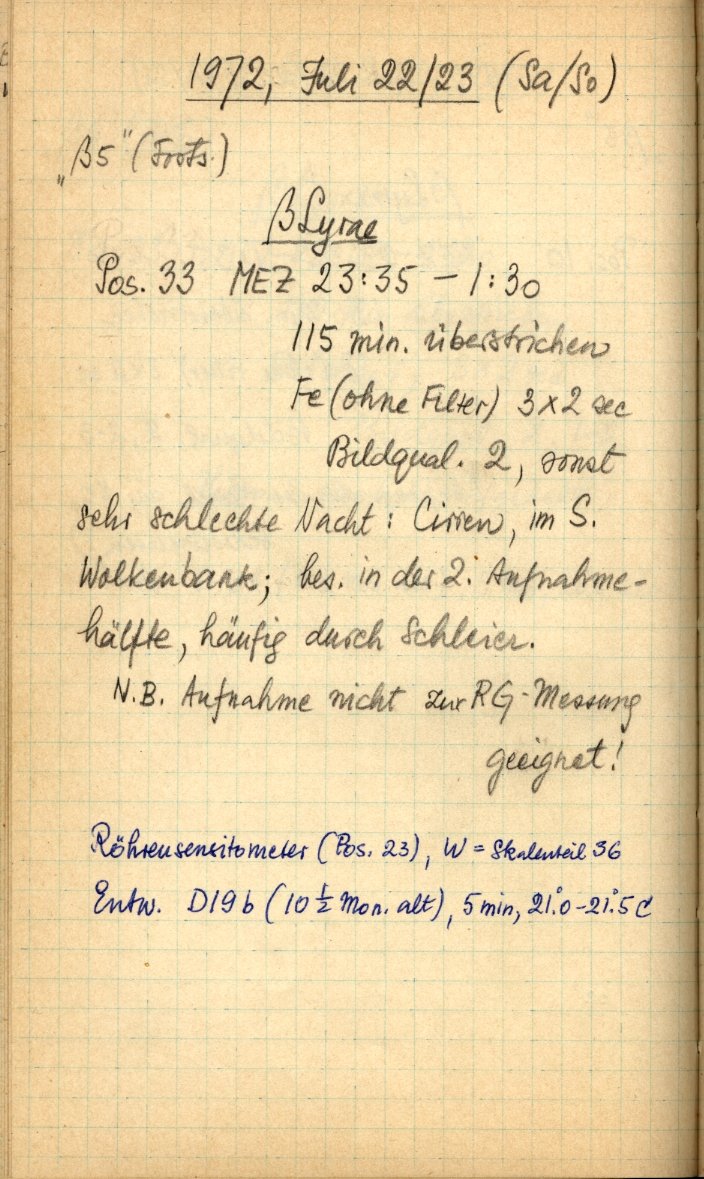 1972, Juli 22/23 (Sa/So)
„β5" (Forts.)
β Lyrae
Pos. 33 MEZ 23:35 – 1:30
115 min. überstrichen
Fe (ohne Filter) 3x2 sec
Bildqual. 2, sonst
sehr schlechte Nacht: Cirren, im S.
Wolkenbank; bes. in der 2. Aufnahme-
hälfte, häufig durch Schleier.
N.B. Aufnahme nicht zur RG-Messung
geeignet!
Röhrensensitometer (Pos. 23), W = Skalenteil 36
Entw. D19b (10 ½ Mon. alt), 5 min, 21°.0–21°.5 C